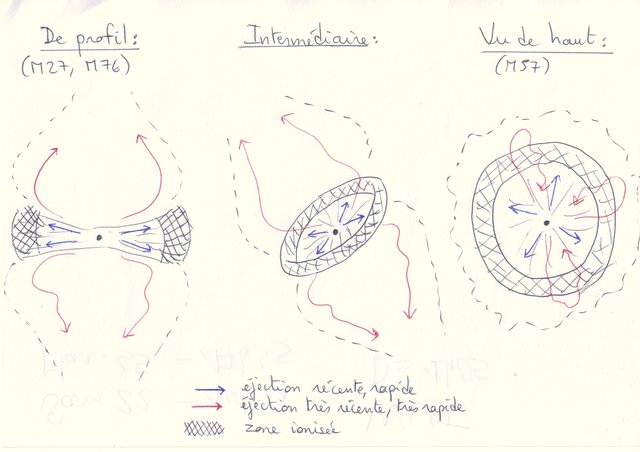 De profil :
(M27, M76)
Intermédiaire :
Vu de haut :
(M57)
éjection récente, rapide
éjection très récente, très rapide
zone ionisée